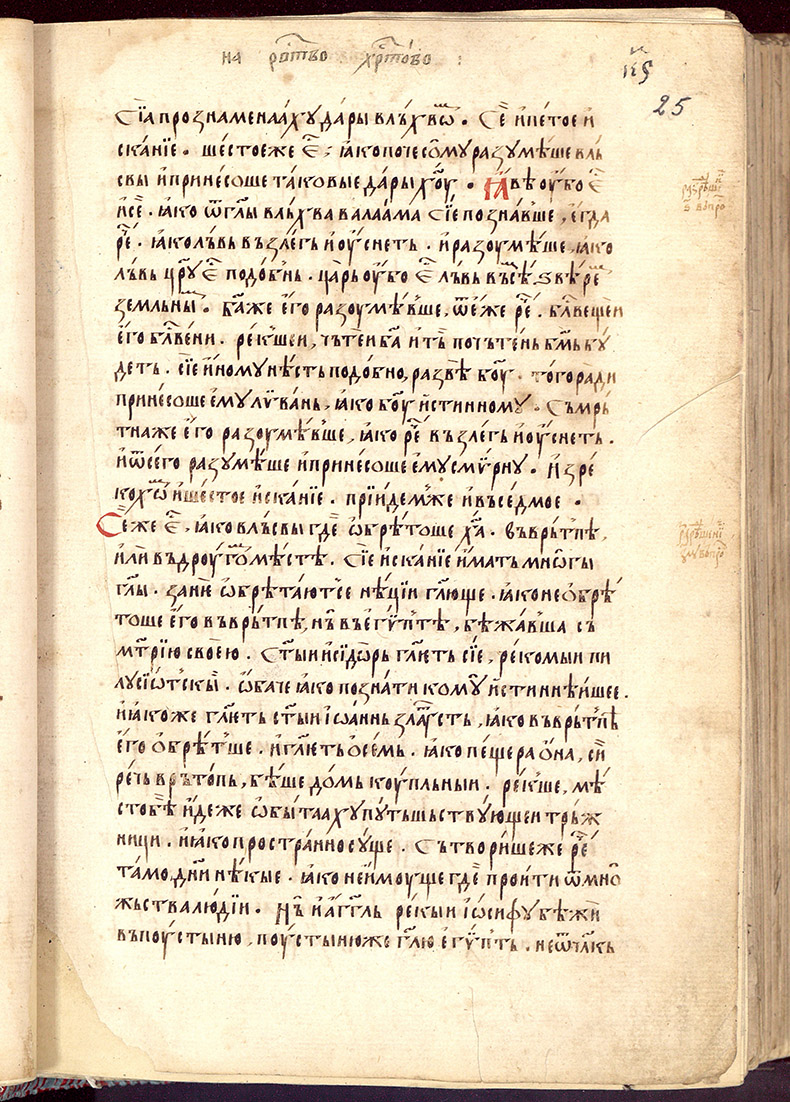 на рⷤоⷭ҇тво хрⷭ҇тово :
к҃ѕ
25
Сїа прознаменаахѹ дары влъхвѡⷨ. Се́ и҆ пѐтое и҆
ска́нїе. шѐстое же є҆ⷭ҇; ꙗко поче сѡмѹ разѹмѣше влъ
сви и҆ принѐсоше таковые да́ры хⷭ҇оу. Ꙗвѐ оу҆бо є҆ⷭ҇
и҆ сѐ. ꙗко ѿ гл҃ы вльхва валаама сїе позна́вше, є҆гда
реⷱ҇. ꙗко львь възлегь и҆ оу҆снеть. и҆ разоумѣше, ꙗко
львь цр҃ѹ є҆ⷭ҇ подобⷩ҇ь. ца́рь оу҆бо є҆ⷭ҇ львь въсѣⷯ ѕвѣре́ⷨ
земльныⷨ. Бг҃а же є҆го разоумѣвше, ѿ є҆же реⷱ҇. бл҃вещеи
є҆го бл҃вени. рекше́и, чьтѐи бг҃а и҆ ть почьтень бг҃мь бѹ
деть. сїе и҆номѹ нѣсть подобно, развѣ бг҃оу. того ради
принесоше є҆мѹ лѵвань, ꙗко бг҃оу и҆стинномѹ. Съмрь
тна же є҆го разоумѣвше, ꙗко реⷱ҇ възлегь и҆ оу҆снеть.
и҆ ѿ сего разѹмѣше и҆ принесоше є҆мѹ смѵрнѹ. И҆зре
кохѡⷨ и҆ шестое и҆сканїе. прїидемже и҆ въ седмое.
Се́ же є҆ⷭ҇, ꙗко влъсви где ѡ҆брѣтоше хⷭ҇а. въ врьтпѣ,
или въ дрѹгоⷨ мѣстѣ. Сїе и҆сканїе и҆мать мнѡгы
гл҃ы. зане ѡ҆брѣтаютсе нѣцїи гл҃юще. ꙗко не ѡ҆брѣ
тоше є҆го въ врьтпѣ, нъ въ є҆гѵптѣ, бѣжавша съ
мт҃рїю своею. Ст҃ыи и҆сїдѡрь гл҃еть сїе, рекомыи пи
лѹсїѡтскы. ѡ҆баче ꙗко познати комѹ и҆стиннѣишее.
и҆ ꙗкоже гл҃еть ст҃ыи і҆ѡаннь злаⷮѹсть, ꙗко въ врьтпѣ
є҆го ѡ҆брѣтше. и҆ гл҃еть ѡ҆ семь. ꙗко пещера ѡ҆на, сии
речь врътопь, бѣше домь коупльныи. рекше, мѣ
сто бѣ и҆деже ѡ҆бытаахѹ пѹтьшьствѹющеи трьж
ници. и҆ ꙗко пространно сѹще. Сътворише же реⷱ҇
тамо, дн҃и нѣкые. ꙗко не и҆моуще где проити ѿ мно
жьства людїи. Нъ и҆ а҆гг҃ль рекыи і҆ѡсифѹ бѣжи
въ поустыню, поустыню же гл҃ю є҆гѵпть. не ѿ чл҃кь